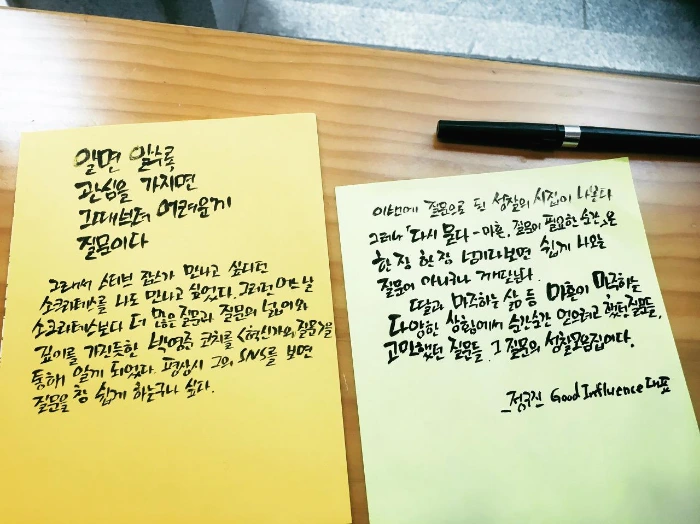 알면 알수록
관심을 가지면
그때부터 어려운게
질문이다
그래서 스티브 잡스가 만나고 싶다던
소크라테스를 나도 만나고 싶었다. 그러던 어느 날
소크라테스보다 더 많은 질문과 질문의 넓이와
깊이를 가진듯한 박영준 코치를 <혁신가의 질문>을
통해 알게 되었다. 평상시 그의 SNS를 보면
질문을 참 쉽게 하는구나 싶다.
이번에 질문으로 된 성찰의 시집이 나왔다
그러나 '다시 묻다 - 마흔, 질문이 필요한 순간'은
한 장 한 장 넘기다보면 쉽게 나오는
질문이 아니구나 깨닫는다.
딸과 마주하는 삶 등 마흔이 마주하는
다양한 상황에서 순간순간 얻으려고 했던 질문들,
고민했던 질문들. 그 질문의 성찰모음집이다.
_정구진 Good Influence 대표